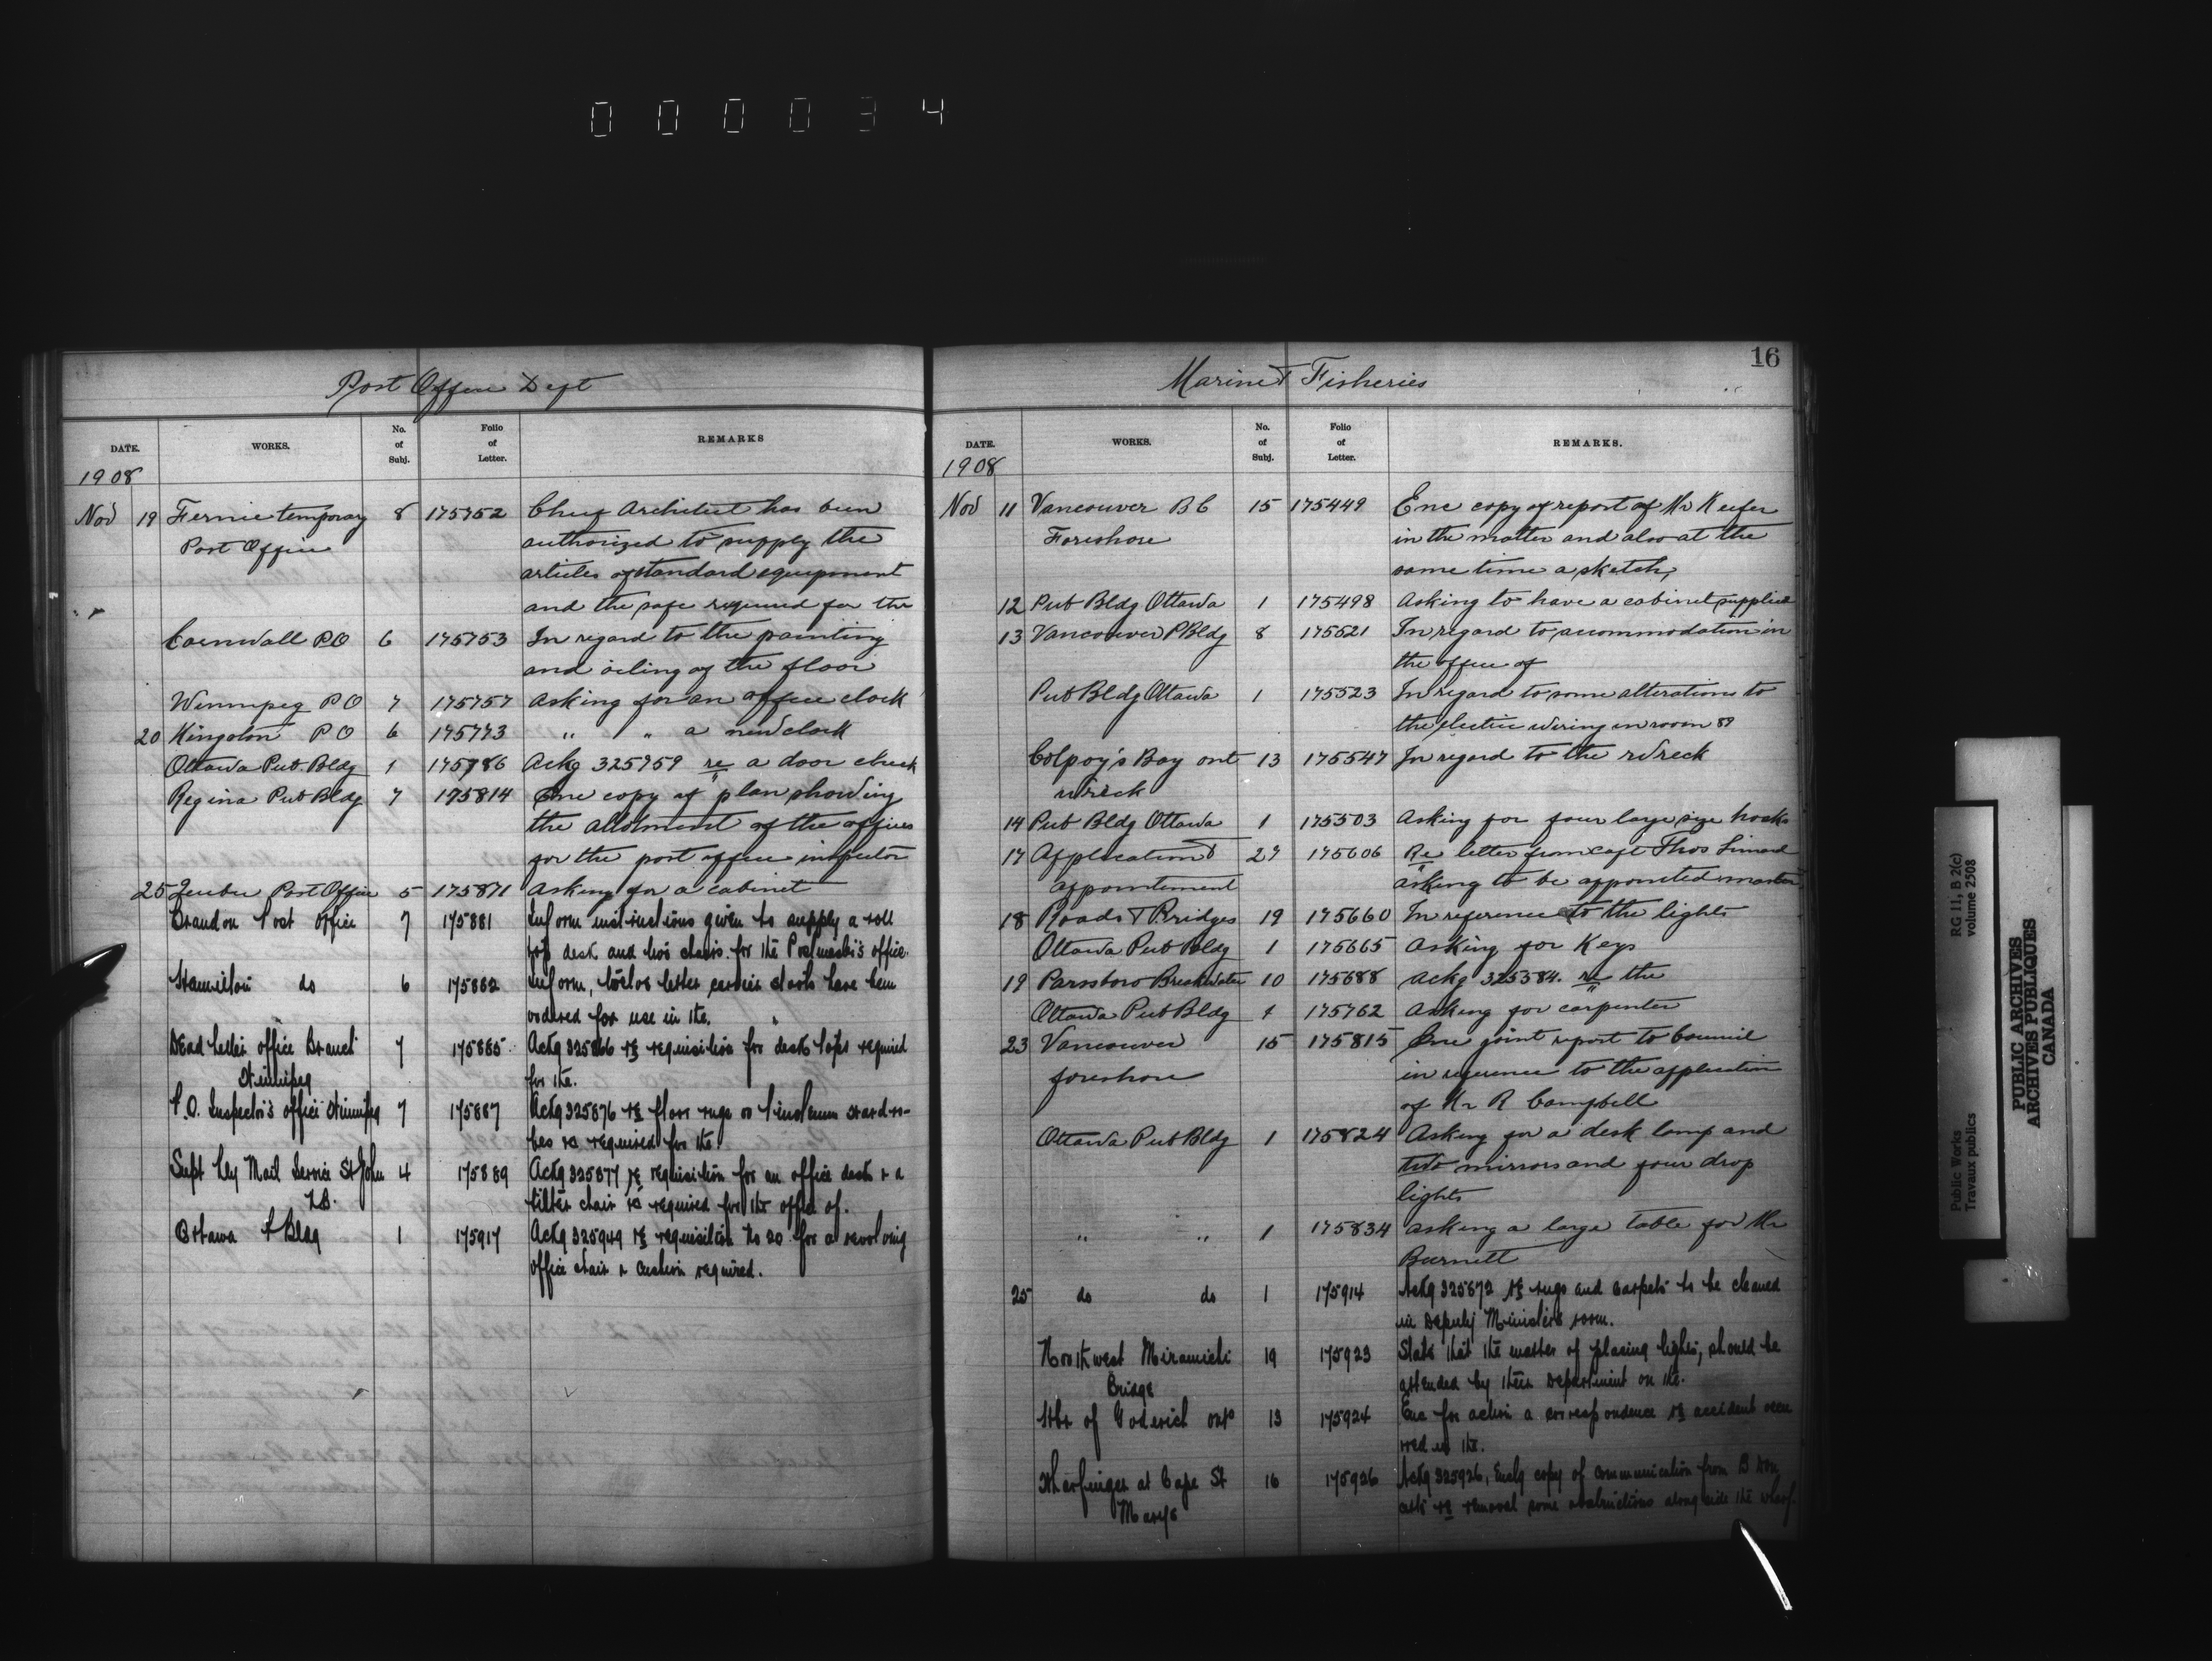 000034
Post Office Dept
DATE. WORKS. No. of Subj. Folio of Letter. REMARKS
1908
Nov 19 Fernie temporary 8 175752 Chief Architect has been
Post Office authorized to supply the
articles of standard equipment
and the safe required for the
Cornwall P.O 6 175753 In regard to the painting
and oiling of the floor
Winnipeg P O 7 175757 Asking for an office clock
20 Kingston P O 6 175773 " " a new clock
Ottawa Pub. Bldg 1 175786 Ackg 325759 re a door check
Regina Pub Bldg 7 175814 Enc copy of plan showing
the allotment of the offices
for the post office inspector
25 Quebec Post Office 5 175871 Asking for a cabinet
Brandon Post Office 7 175881 Inform instructions given to supply a roll
top desk and two chairs for the Postmaster's office.
Hamilton do 6 175882 Inform, twelve letter carrier stools have been
ordered for use in the.
Dead Letter office Branch 7 175885 Ackg 325866 re requisition for desk tops required
Winnipeg for the.
P.O. Inspector's office Winnipeg 7 175887 Ackg 325876 re floor rugs or linoleum wardro-
bes as required for the
Supt Ry Mail Service St John 4 175889 Ackg 325877 re requisition for an office desk & a
N.B. tilter chair as required for the office of.
Ottawa P Bldg 1 175917 Ackg 325949 re requisition No 20 for a revolving
office chair & cushion required.
16
Marine & Fisheries
DATE. WORKS. No. of Subj. Folio of Letter. REMARKS.
1908
Nov 11 Vancouver B C 15 175449 Enc copy of report of Mr Keefer
Foreshore in the matter and also at the
same time a sketch,
12 Pub Bldg Ottawa 1 175498 Asking to have a cabinet supplied
13 Vancouver P Bldg 8 175521 In regard to accommodation in
the office of
Pub Bldg Ottawa 1 175523 In regard to some alterations to
the electric wiring in room 89
Colpoy's Bay ont 13 175547 In regard to the wreck
wreck
14 Pub Bldg Ottawa 1 175503 Asking for four large size hooks
17 Application & 27 175606 Re letter from Capt Thos
appointment asking to be appointed master
18 Roads & Bridges 19 175660 In reference to the lights
Ottawa Pub Bldg 1 175665 Asking for Keys
19 Parrsboro Breakwater 10 175688 Ackg 325584. re the
Ottawa Pub Bldg 1 175762 Asking for carpenter
23 Vancouver 15 175815 Enc joint report to Council
foreshore in reference to the application
of Mr R Campbell
Ottawa Pub Bldg 1 175824 Asking for a desk lamp and
two mirrors and four drop
lights
" " 1 175834 asking a large table for Mr
Burnett
25 do do 1 175914 Ackg 325872 re rugs and carpets to be cleaned
in Deputy Ministers room.
Northwest Miramichi 19 175923 State that the matter of placing lights, should be
Bridge attended by their Department on the.
Hbr of Goderich onto 13 175924 Enc for action a correspondence re accident occu
rred in the.
Wharfinger at Cape St 16 175926 Ackg 325926, Enclg copy of communication from B
Mary's re removal some obstructions along side the wharf.
Public Works
Travaux publics
RG 11, B 2(c)
volume 2508
PUBLIC ARCHIVES
ARCHIVES PUBLIQUES
CANADA